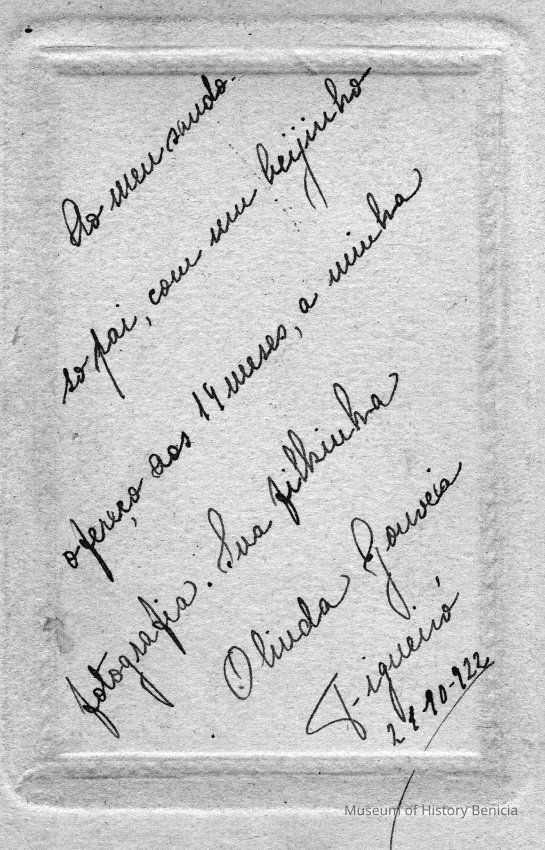 Ao meu saudo-
so pai, com um beijinho
ofereço aos 14 meses, a minha
fotografia. Sua filhinha
Olinda Gouveia
Figueiró
21-10-922
Museum of History Benicia